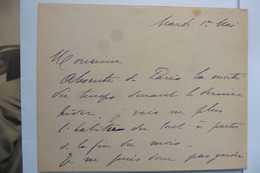 Mardi 1er Mai
Monsieur
Absente de Paris la moitié
du temps durant le dernier
hiver, je vais ne plus
l'habiter du tout à partir
de la fin du mois –
Je ne puis donc pas garder